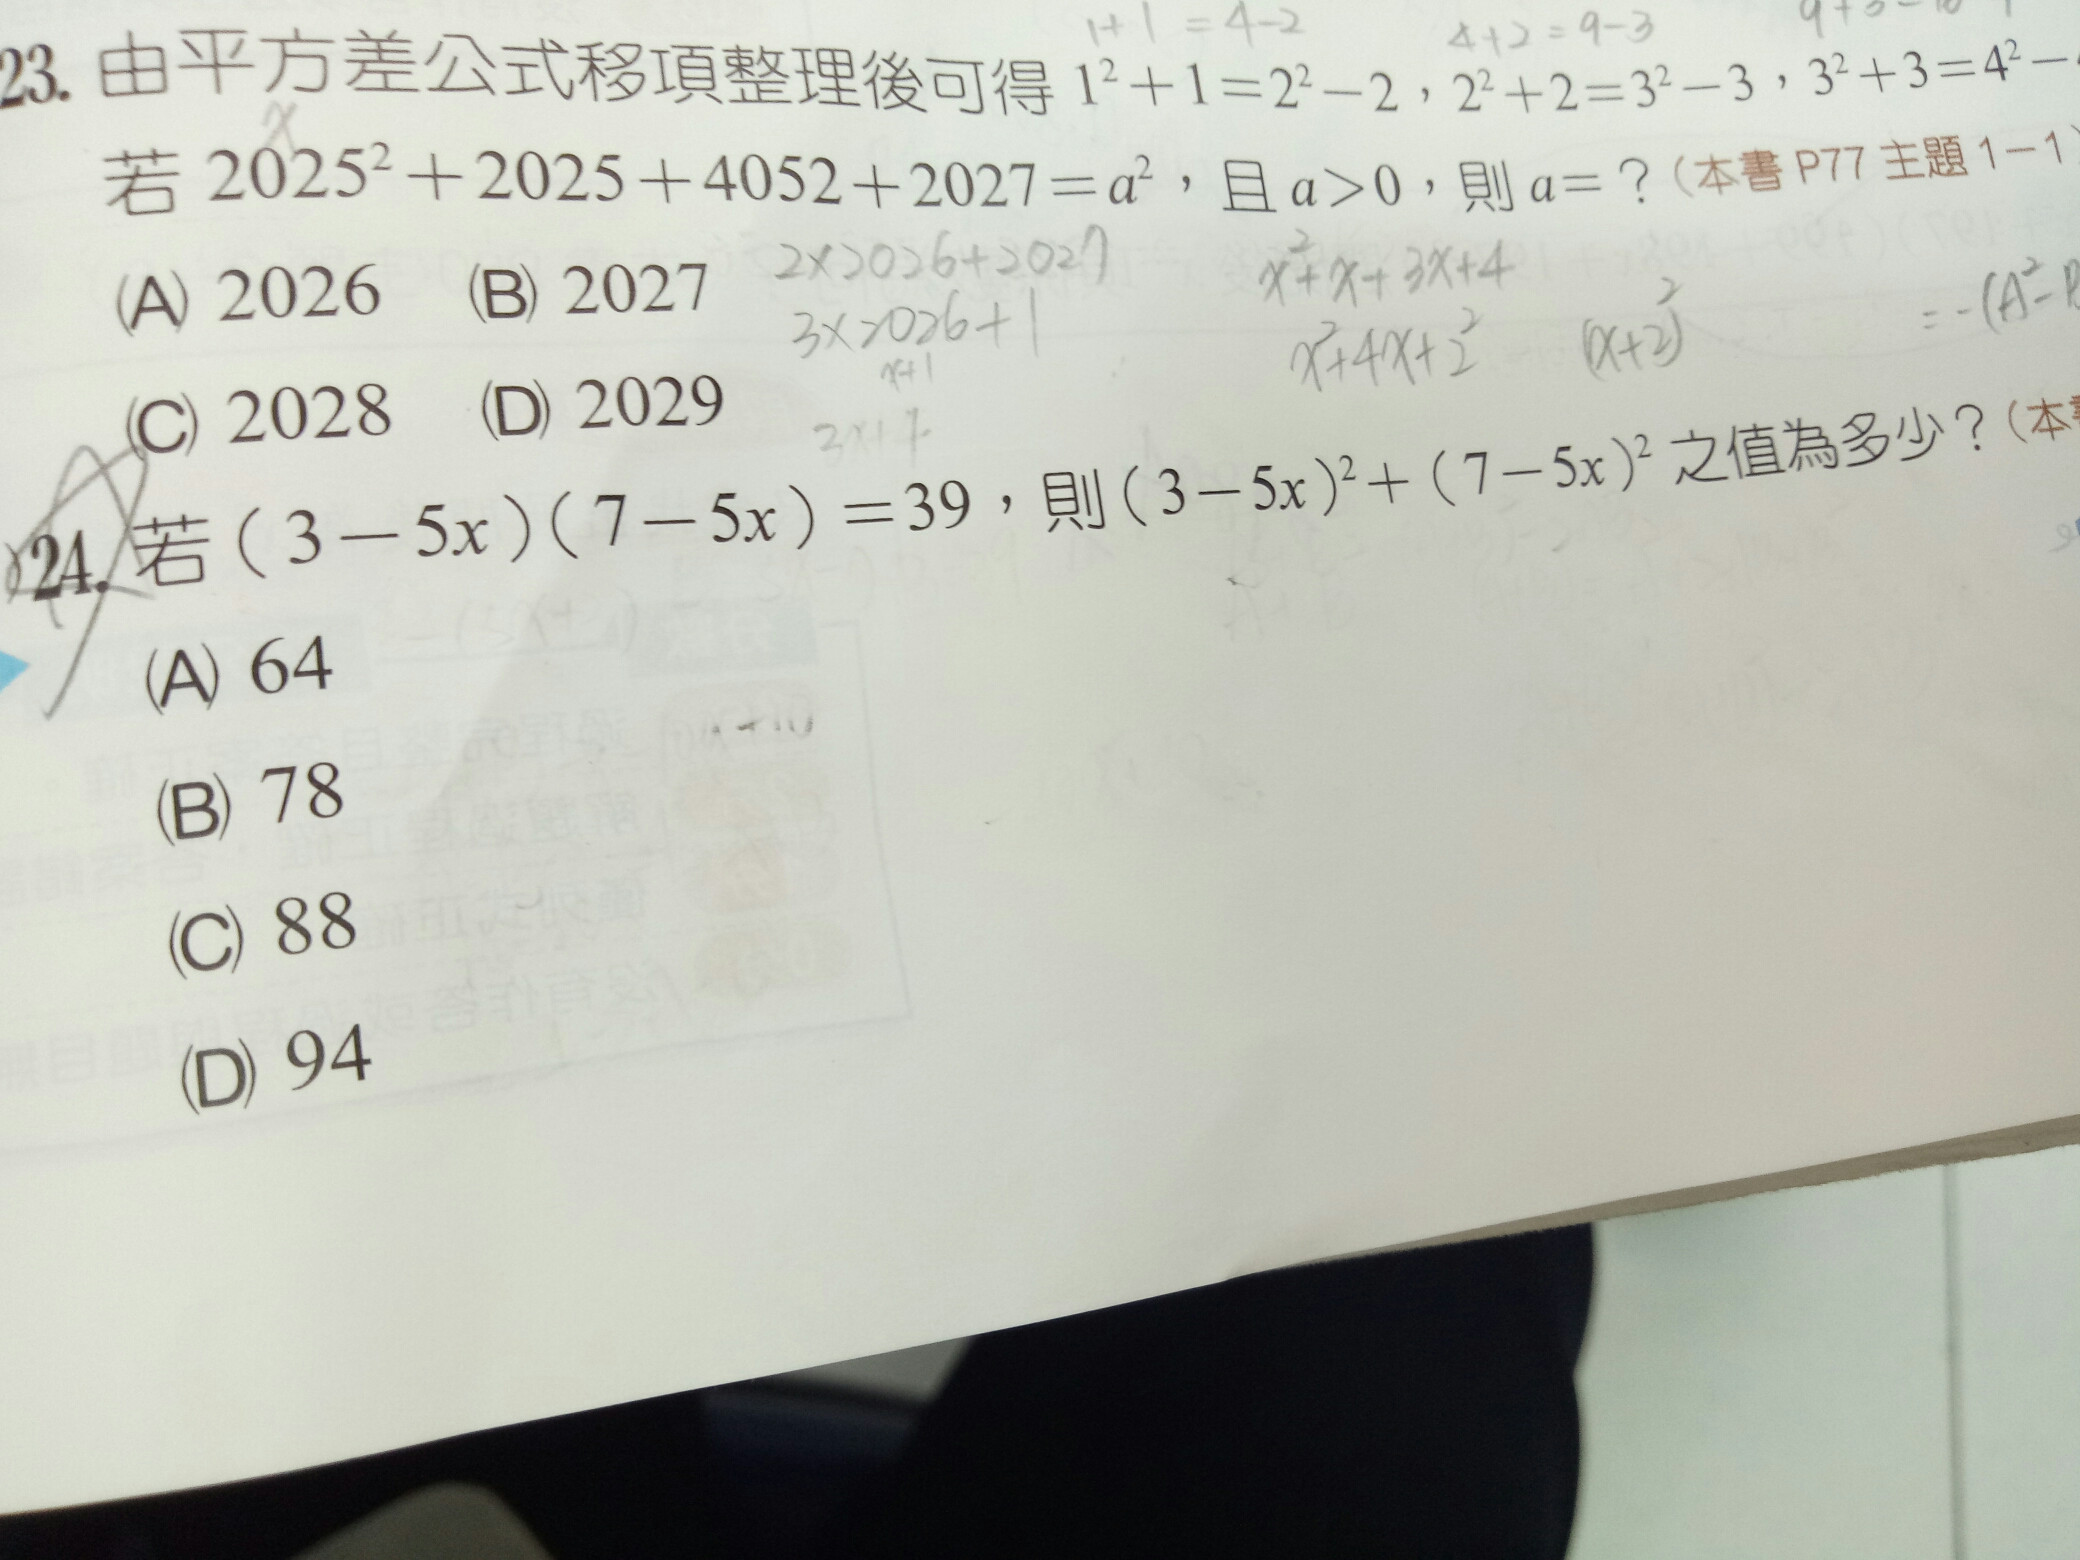 1+1=4-2 4+2=9-3
23. 由平方差公式移項整理後可得 1²+1=2²-2，2²+2=3²-3，3²+3=4²-
x
若 2025²+2025+4052+2027=a²，且 a>0，則 a=？（本書 P77 主題 1-1）
(A) 2026 (B) 2027
2×2026+2027
3×2026+1
x+1
x²+x+3x+4
x²+4x+2² (x+2)²
=-(A²-
(C) 2028 (D) 2029
24. 若（3-5x）（7-5x）=39，則（3-5x）²+（7-5x）² 之值為多少？（本
(A) 64
(B) 78
(C) 88
(D) 94